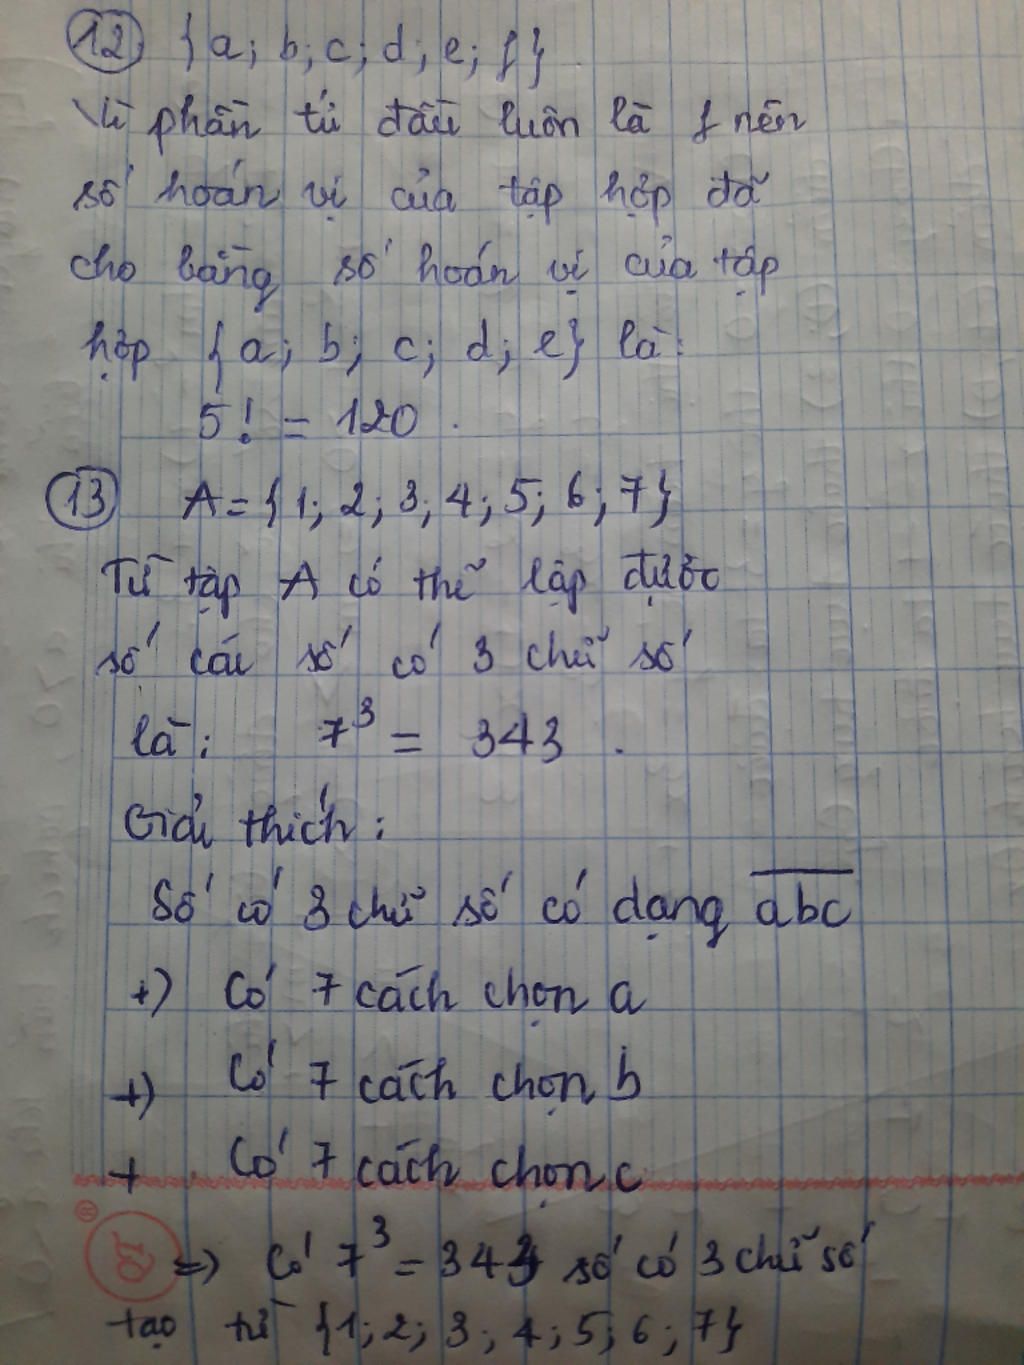 12 {a; b; c; d; e; f}
Vì phần tử đầu luôn là f nên
số hoán vị của tập hợp đã
cho bằng số hoán vị của tập
hợp {a; b; c; d; e} là:
5! = 120.
13 A = {1; 2; 3; 4; 5; 6; 7}
Từ tập A có thể lập được
số các số có 3 chữ số
là: 7³ = 343.
Giải thích:
Số có 3 chữ số có dạng \overline{abc}
+) Có 7 cách chọn a
+) Có 7 cách chọn b
+ Có 7 cách chọn c
=> Có 7³ = 343 số có 3 chữ số
tạo từ {1; 2; 3; 4; 5; 6; 7}